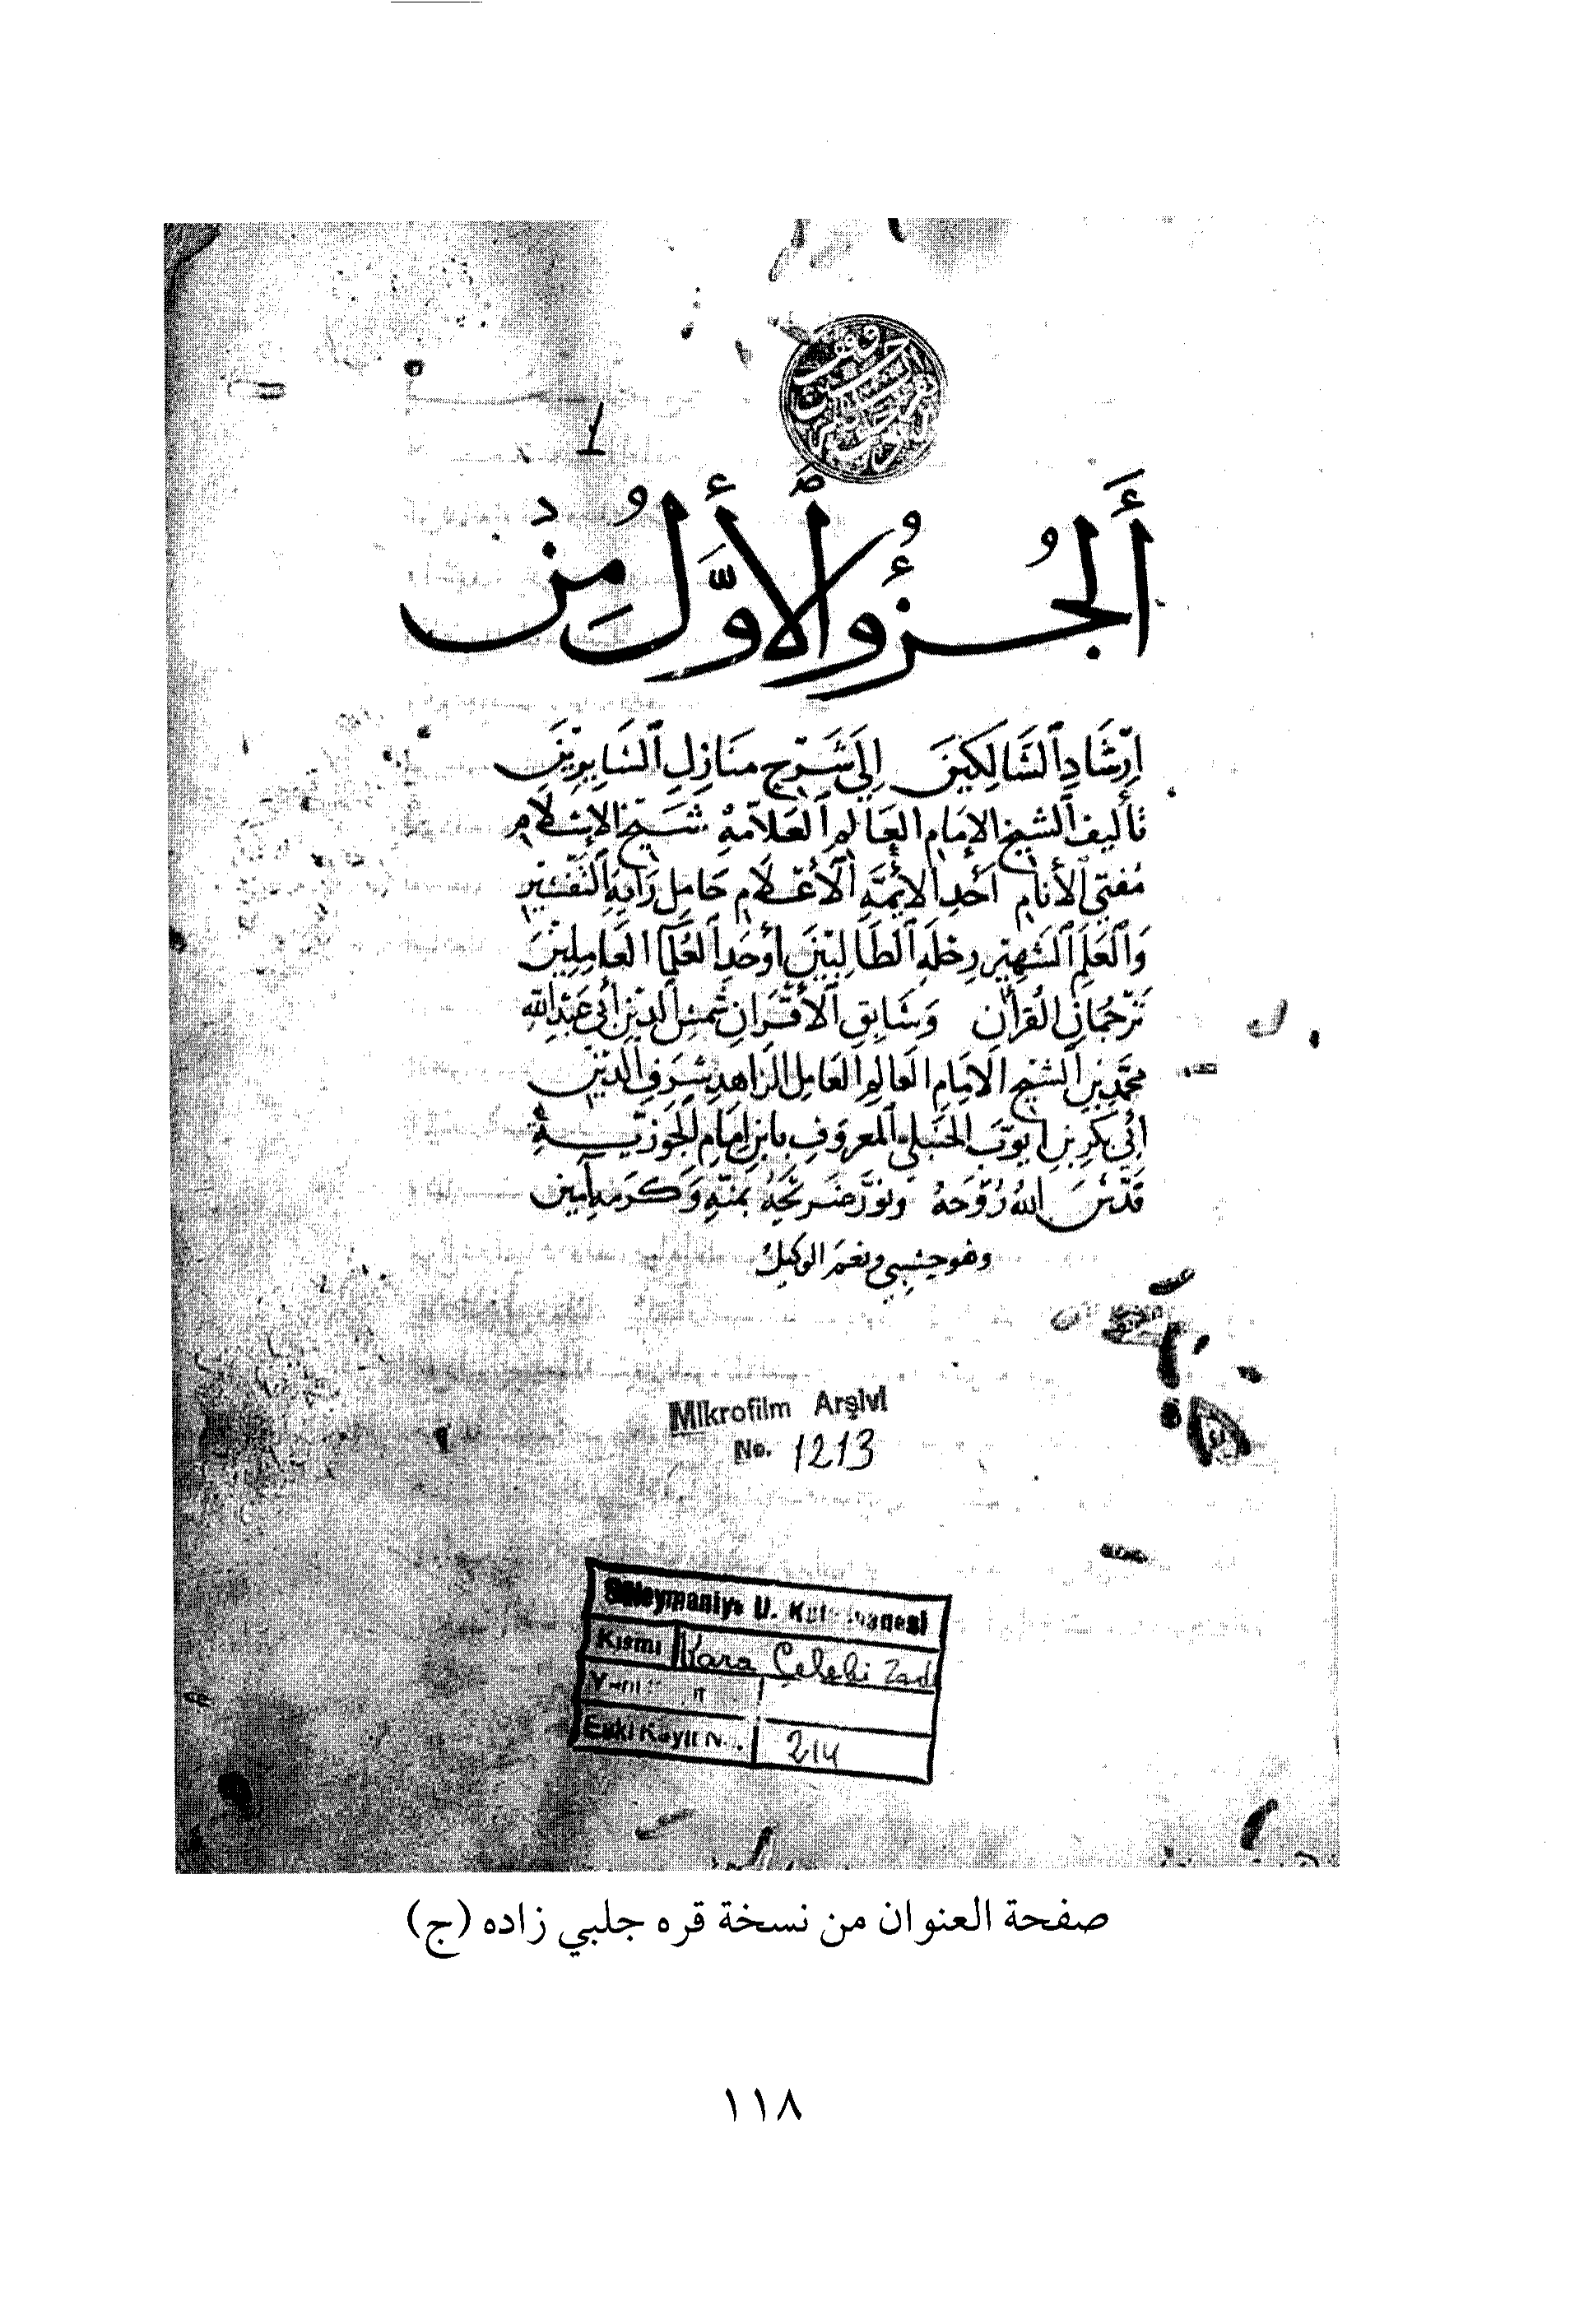 1
أَلجُزؤُ ٱلأَوَّلُ مِنْ
إِرْشَادِ ٱلسَّالِكِينَ إِلَى شَرْحِ مَنَازِلِ ٱلسَّايِرِيْنَ
تَأليف ٱلشيخ الإمَام العَالِم ٱلعَلاّمةُ شَيخ الإسْلَام
مُفتي ٱلأنام أحَدِ الأئِمَّةِ ٱلأعْلَام حَامِل رَايةِ ٱلتَّفسْيْرِ
وَٱلعَلَمِ ٱلشَهِيْرِ رحْلَةِ ٱلطَالِبيْنَ أوحَدِ ٱلعُلَمآ العَامِلِيْنَ
تَرْجُمَانِ القُرآنِ وَسَابِقِ ٱلأقْرَانِ شَمْسِ ٱلدّيْنِ أبي عَبْدِ اللّٰه
محمّد بْنِ ٱلشيْخ الامَام العَالِم العَامِل الزاهِد شَرَفِ الدّيْن
أبي بَكرِ بْنِ أيوّبَ الحَنْبلي ٱلمعروُفِ بابنِ إمَام الجَوزيَّةِ
قَدّسَ اللّٰهُ رُوْحَهُ ونوَّر ضَريْحَهُ بمنّهِ وَكرَمِهِ آمِين
وهو حَسْبي ونعْمَ الوَكيلُ
Mikrofilm Arşivi
No. 1213
Süleymaniye U. Kütüphanesi
Kısmı Kara Çelebi Zad
Eski Kayıt No. 214
صفحة العنوان من نسخة قره جلبي زاده (ج)
١١٨